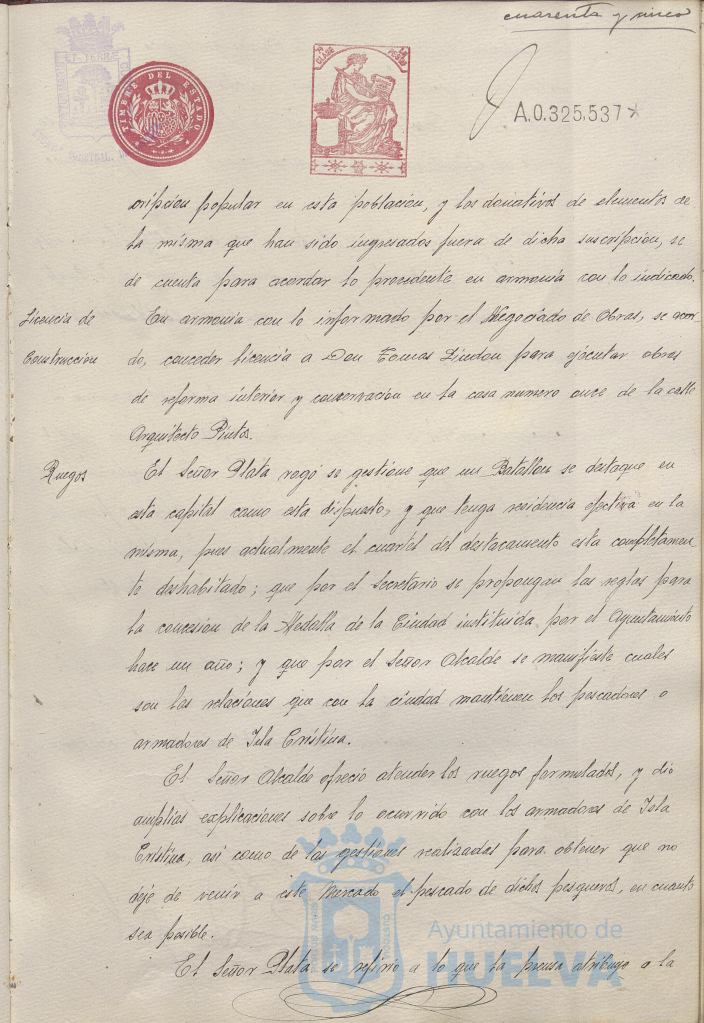 cuarenta y cinco
TIMBRE DEL ESTADO
A.0.325,537*
cripcion popular en esta poblacion, y los donativos de elementos de
la misma que han sido ingresados fuera de dicha suscripcion, se
de cuenta para acordar lo procedente en armonia con lo indicado.
Licencia de
Construccion
En armonia con lo informado por el Negociado de Obras, se acor
do, conceder licencia a Don Tomas Lindon para ejecutar obras
de reforma interior y conservacion en la casa numero once de la calle
Arquitecto Pintos.
Ruegos
El Señor Plata rogó se gestione que un Batallon se destaque en
esta capital como esta dispuesto, y que tenga residencia efectiva en la
misma, pues actualmente el cuartel del destacamento esta completamen
te deshabitado; que por el Secretario se propongan las reglas para
la concesion de la Medalla de la Ciudad instituida por el Ayuntamiento
hace un año; y que por el Señor Alcalde se manifieste cuales
son las relaciones que con la ciudad mantienen los pescadores o
armadores de Isla Cristina.
El Señor Alcalde ofreció atender los ruegos formulados, y dio
amplias explicaciones sobre lo ocurrido con los armadores de Isla
Cristina, asi como de las gestiones realizadas para obtener que no
deje de venir a este Mercado el pescado de dichos pesqueros, en cuanto
sea posible.
El Señor Plata se refirio a lo que la prensa atribuye a la
Ayuntamiento de
HUELVA